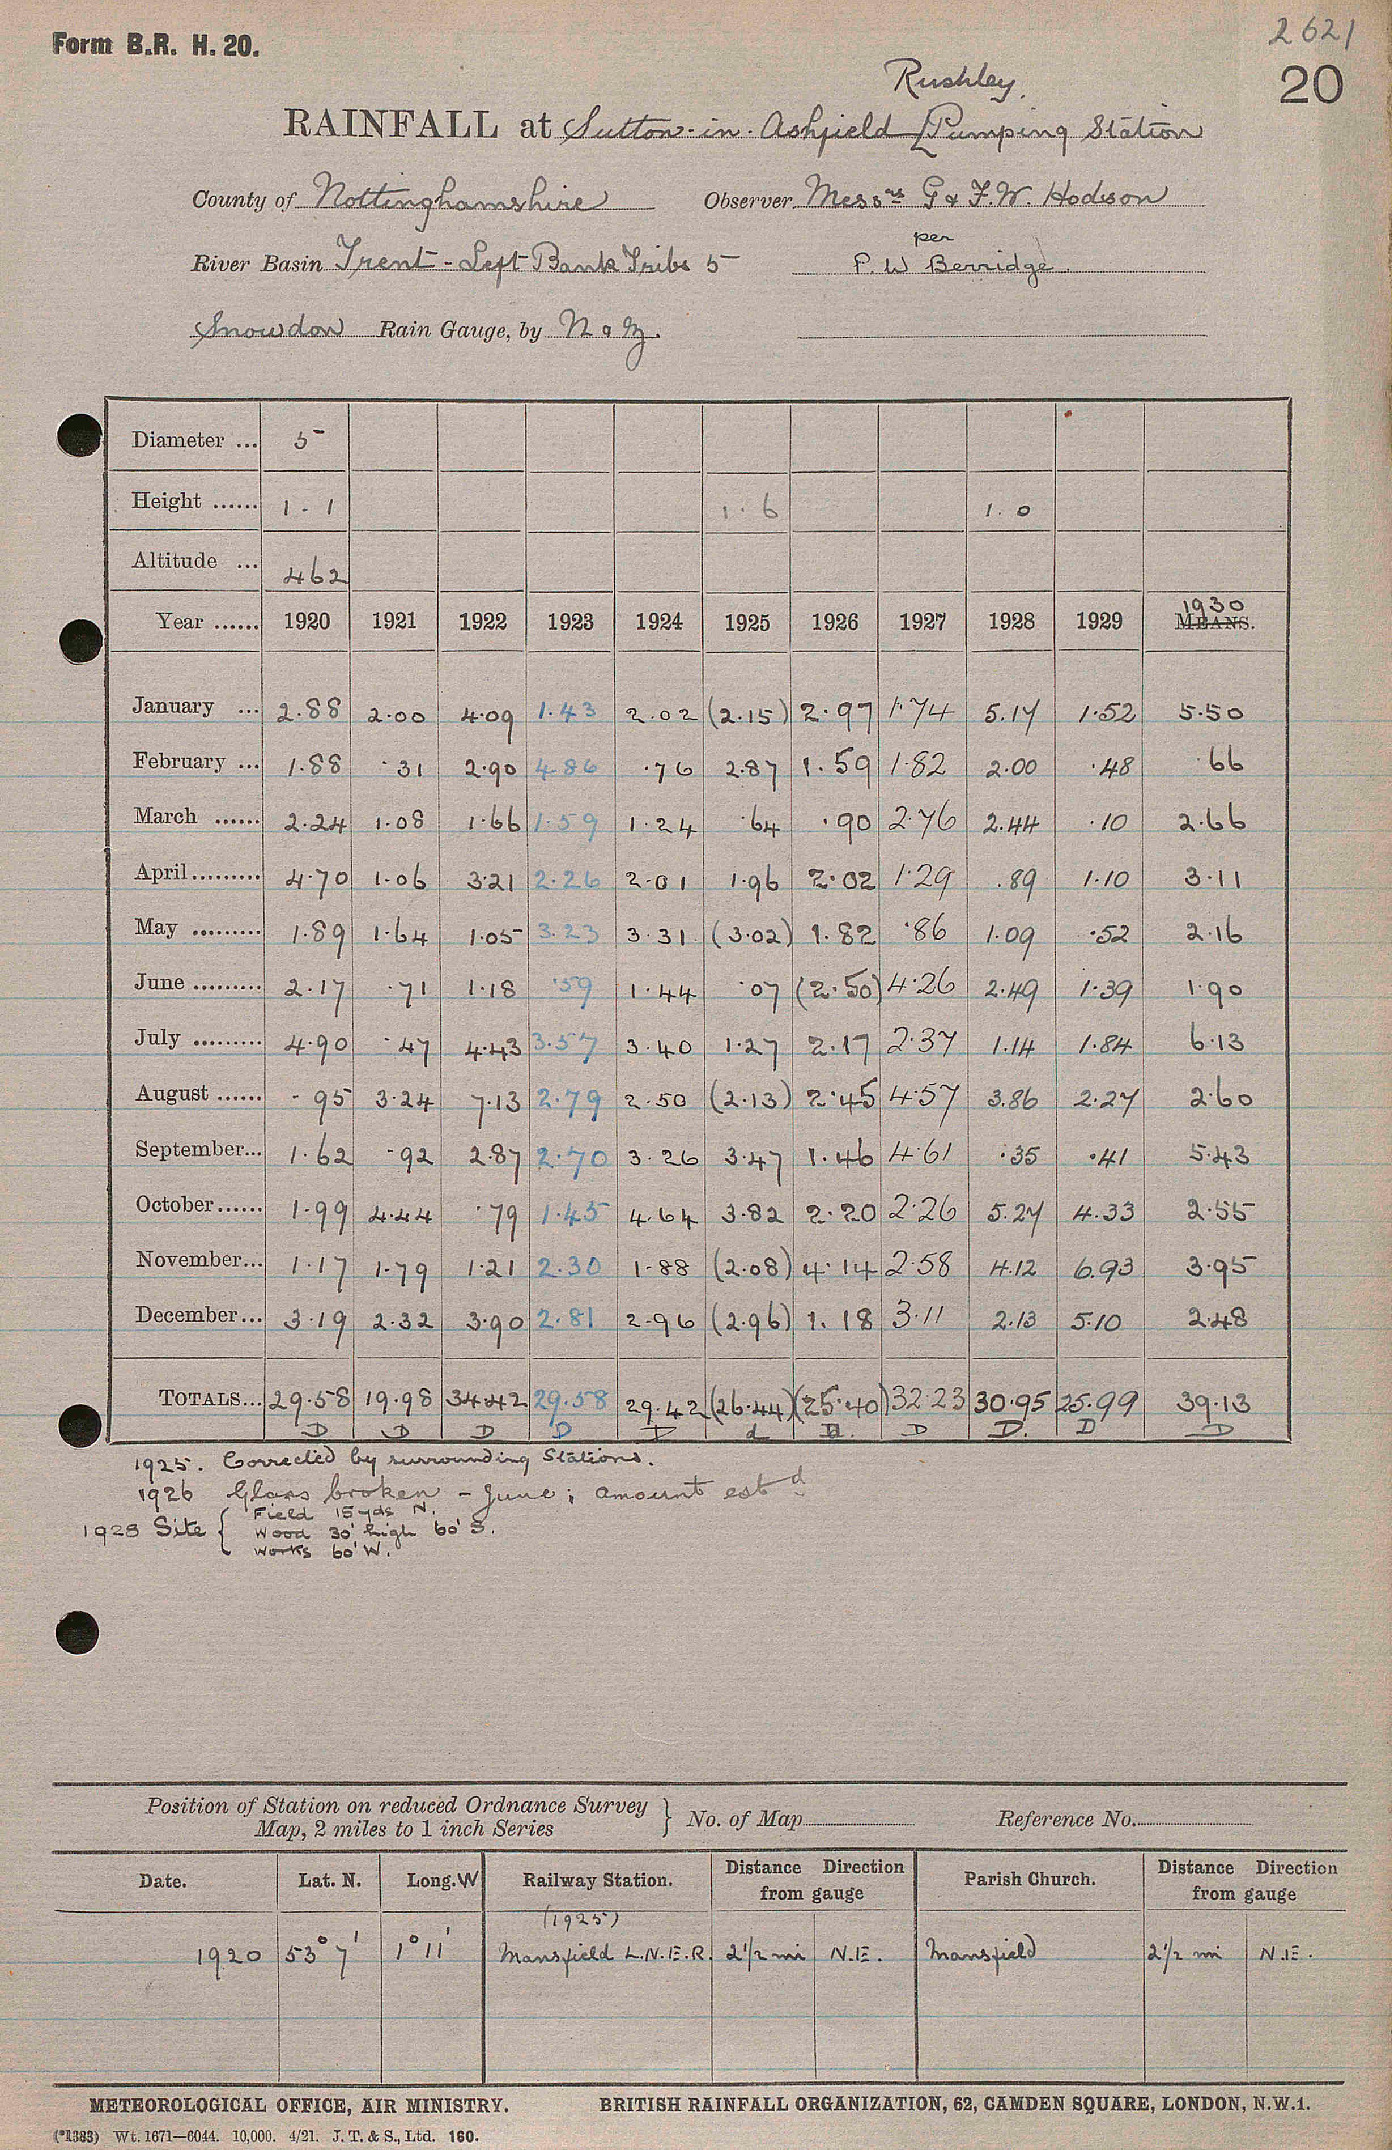 Form B.R. H. 20.
2621
20
Rushley.
RAINFALL at Sutton-in-Ashfield [Pumping Station
County of Nottinghamshire Observer Messrs G & F.W. Hodson
per
River Basin Trent - Left Bank Tribs 5 P. W Berridge
Snowdon Rain Gauge, by N & Z.
Diameter ... 5
Height ...... 1.1 1.6 1.0
Altitude ... 462
Year ...... 1920 1921 1922 1923 1924 1925 1926 1927 1928 1929 1930 MEANS.
January ... 2.88 2.00 4.09 1.43 2.02 (2.15) 2.97 1.74 5.17 1.52 5.50
February ... 1.88 .31 2.90 4.86 .76 2.87 1.59 1.82 2.00 .48 .66
March ...... 2.24 1.08 1.66 1.59 1.24 .64 .90 2.76 2.44 .10 2.66
April ......... 4.70 1.06 3.21 2.26 2.01 1.96 2.02 1.29 .89 1.10 3.11
May ......... 1.89 1.64 1.05 3.23 3.31 (3.02) 1.82 .86 1.09 .52 2.16
June ......... 2.17 .71 1.18 .59 1.44 .07 (2.50) 4.26 2.49 1.39 1.90
July ......... 4.90 .47 4.43 3.57 3.40 1.27 2.17 2.37 1.14 1.84 6.13
August ...... .95 3.24 7.13 2.79 2.50 (2.13) 2.45 4.57 3.86 2.27 2.60
September... 1.62 .92 2.87 2.70 3.26 3.47 1.46 4.61 .35 .41 5.43
October...... 1.99 4.44 .79 1.45 4.64 3.82 2.20 2.26 5.27 4.33 2.55
November... 1.17 1.79 1.21 2.30 1.88 (2.08) 4.14 2.58 4.12 6.93 3.95
December... 3.19 2.32 3.90 2.81 2.96 (2.96) 1.18 3.11 2.13 5.10 2.48
TOTALS... 29.58 19.98 34.42 29.58 29.42 (26.44) (25.40) 32.23 30.95 25.99 39.13
D D D D D d D. D D. D D
1925. Corrected by surrounding Stations.
1926 Glass broken - June; amount estd
1928 Site { Field 15 yds N.
Wood 30' high 60' S.
Works 60' W.
Position of Station on reduced Ordnance Survey
Map, 2 miles to 1 inch Series } No. of Map Reference No.
Date. Lat. N. Long. W Railway Station. Distance Direction from gauge Parish Church. Distance Direction from gauge
(1925)
1920 53° 7' 1° 11' Mansfield L.N.E.R. 2 1/2 mi N.E. Mansfield 2 1/2 mi N.E.
METEOROLOGICAL OFFICE, AIR MINISTRY. BRITISH RAINFALL ORGANIZATION, 62, CAMDEN SQUARE, LONDON, N.W.1.
(*1383) Wt. 1671—6044. 10,000. 4/21. J. T. & S., Ltd. 160.